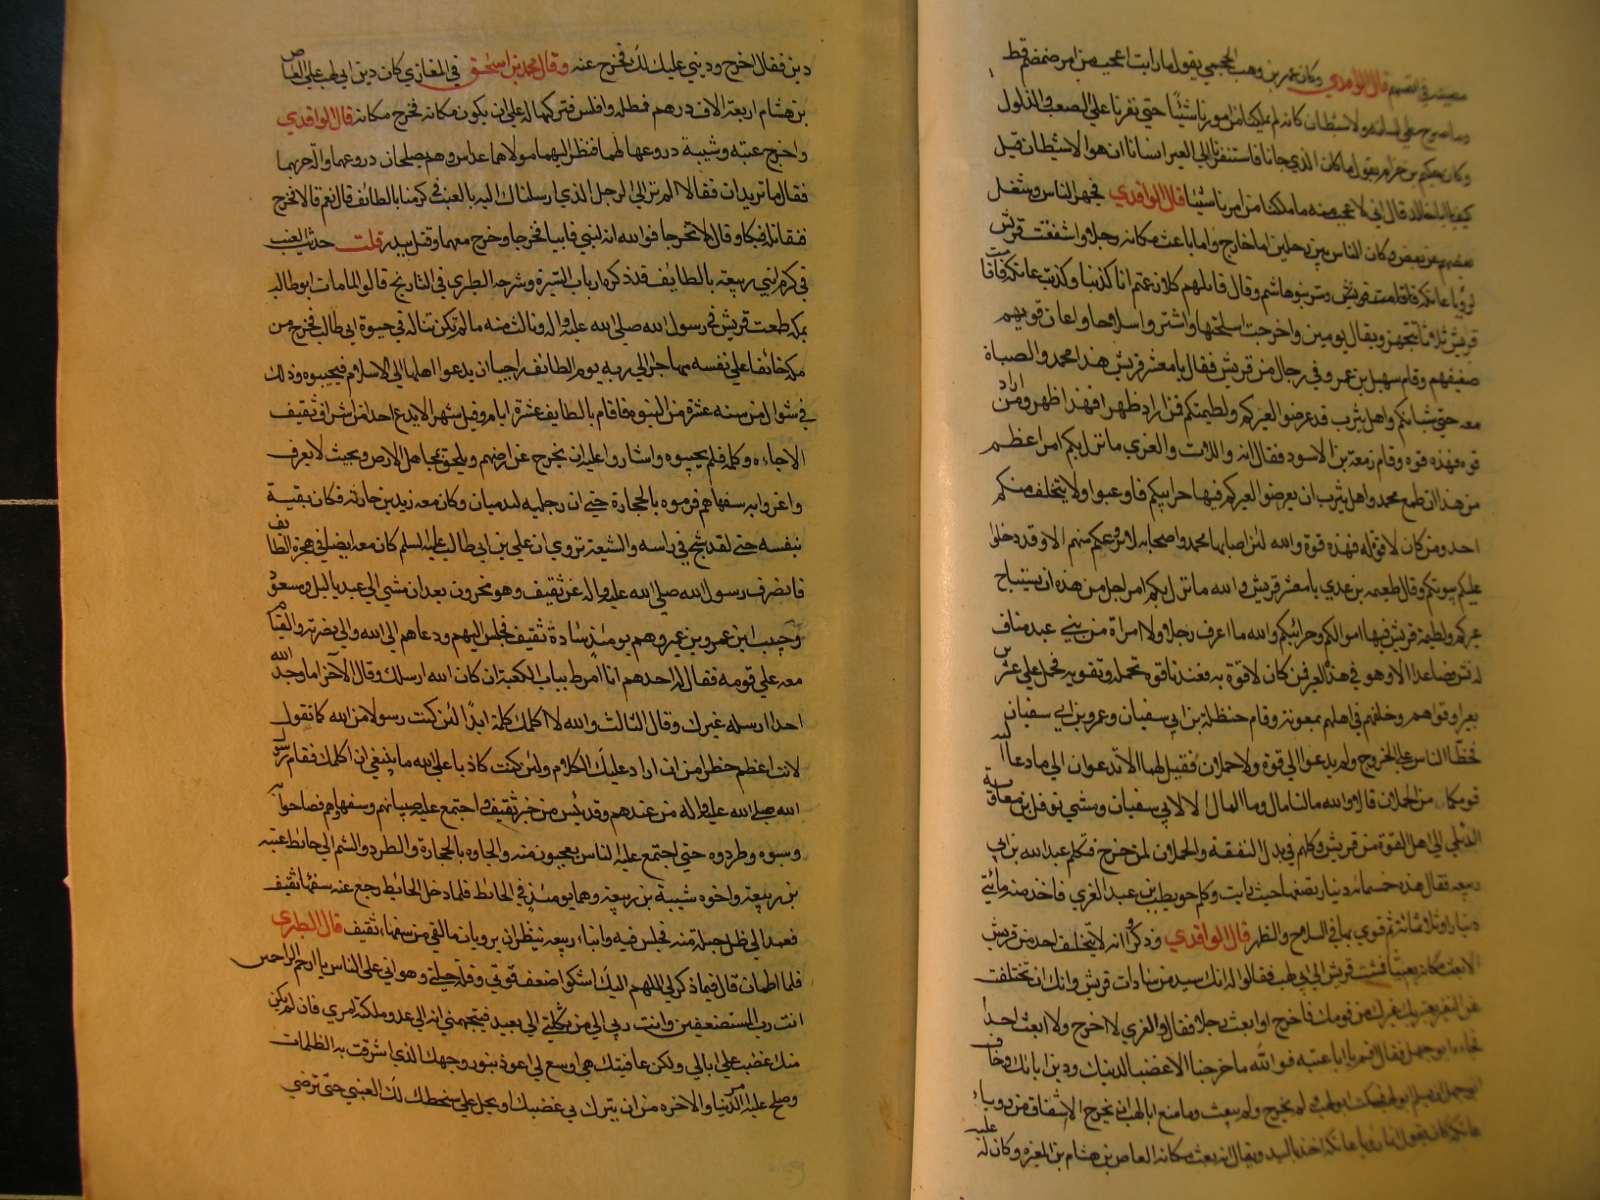 في نفسهم قال الواقدي وكان عمير بن وهب الجمحي يقول ما رايت اعجب من امر ضمضم قط
وما صرخ على لسانه الا شيطان كانه لم يملكنا من امورنا شيئا حتى نفرنا على الصعب والذلول
وكان حكيم بن حزام يقول ما كان الذي جانا فاستنفرنا الى العير انسانا ان هو الا شيطان فقيل
كيف يا ابا خالد قال اني لاعجب منه ما ملكنا من امرنا شيئا قال الواقدي فجهز الناس وشغل
بعضهم عن بعض وكان الناس بين رجلين اما خارج واما باعث مكانه رجلا واشفقت قريش
لرؤيا عاتكة وسر بنو هاشم وقال قائلهم كلا زعمتم انا كذبنا وكذبت عاتكة فاقامت
قريش ثلاثا تتجهز ويقال يومين واخرجت اسلحتها واشتروا سلاحا واعان قويهم
ضعيفهم وقام سهيل بن عمرو في رجال من قريش فقال يا معشر قريش هذا محمد والصباة
معه من شبانكم واهل يثرب قد عرضوا لعيركم ولطيمتكم فمن اراد ظهرا فهذا ظهر ومن اراد
قوة فهذه قوة وقام زمعة بن الاسود فقال انه واللات والعزى ما نزل بكم امر اعظم
من هذا ان طمع محمد واهل يثرب ان يعرضوا لعيركم فيها حرايبكم فاوعبوا ولا يتخلف منكم
احد ومن كان لا قوة له فهذه قوة والله لئن اصابها محمد واصحابه لا يروعكم منهم الا وقد دخلوا
عليكم بيوتكم وقال طعيمة بن عدي يا معشر قريش والله ما نزل بكم امر اجل من هذه ان يستباح
عيركم ولطيمة قريش فيها اموالكم وحرائبكم والله ما اعرف رجلا ولا امراة من بني عبد مناف
له نش فصاعدا الا وهو في هذه العير فمن كان لا قوة به فعندنا قوة نحمله ونقويه فحمل على عشرين
بعيرا وقواهم وخلفهم في اهلهم بمعونة وقام حنظلة بن ابي سفيان وعمرو بن ابي سفيان
فحضا الناس على الخروج ولم يدعوا الى قوة ولا حملان فقيل لهما الا تدعوان الى ما دعا اليه
قومكما من الحملان قالا والله ما لنا مال وما المال الا لابي سفيان ومشى نوفل بن معاوية
الدئلي الى اهل القوة من قريش وكلمهم في بذل النفقة والحملان لمن خرج فكلم عبد الله بن ابي
ربيعة فقال هذه خمسمائة دينار تضعها حيث رايت وكلم حويطب بن عبد العزى فاخذ منه مائتي
دينار او ثلاثمائة ثم قوى بها في السلاح والظهر قال الواقدي وذكروا انه لا يتخلف احد من قريش
الا بعث مكانه بعيثا فمشت قريش الى ابي لهب فقالوا له انك سيد من سادات قريش وانك ان تخلفت
عن النفير يعتبر بك غيرك من قومك فاخرج او ابعث رجلا فقال واللات والعزى لا اخرج ولا ابعث احدا
فجاءه ابو جهل فقال قم يا ابا عتبة فوالله ما خرجنا الا غضبا لدينك ودين ابائك وخاف
ابو جهل ان يسلم ابو لهب فسكت ابو لهب ولم يخرج ولم يبعث وما منع ابا لهب ان يخرج الا الاشفاق من رؤيا
عاتكة كان يقول انما رؤيا عاتكة اخذ باليد ويقال انه بعث مكانه العاص بن هشام بن المغيرة وكان له عليه
دين فقال اخرج وديني عليك لك فخرج عنه وقال محمد بن اسحق في المغازي كان دين ابي لهب على العاص
بن هشام اربعة الاف درهم فمطله وافلس فتركها له على ان يكون مكانه فخرج مكانه قال الواقدي
واخرج عتبة وشيبة دروعها لهما فنظر اليهما مولاهما عداس وهم يصلحان دروعهما والة حربهما
فقال ما تريدان فقالا الم تر الى الرجل الذي ارسلناك اليه بالعنب في كرمنا بالطائف قال نعم قالا نخرج
فنقاتله فبكا وقال لا تخرجا فوالله انه لنبي فابيا فخرجا وخرج معهما وقتل ببدر قلت حديث العنب
في كرم ابني ربيعة بالطايف قد ذكره ارباب السيرة وشرحه الطبري في التاريخ قال لما مات ابو طالب
بمكة طمعت قريش في رسول الله صلى الله عليه واله ونالت منه ما لم تكن تناله في حيوة ابي طالب فخرج من
مكة خائفا على نفسه مهاجرا الى ربه يوم الطائف راجيا ان يدعوا اهلها الى الاسلام فيجيبوه وذلك
في شوال من سنه عشرة من النبوة فاقام بالطايف عشرة ايام وقيل شهرا لا يدع احدا من اشراف ثقيف
الا جاءه وكلمه فلم يجيبوه واشاروا عليه ان يخرج عن ارضهم ويلحق بمجاهل الارض وبحيث لا يعرف
واغروا به سفهاهم فرموه بالحجارة حتى ان رجليه لتدميان وكان معه زيد بن حارثه فكان يقيه
بنفسه حتى لقد شج في راسه والشيعة تروي ان علي بن ابي طالب عليه السلم كان معه ايضا في هجرة الطايف
فانصرف رسول الله صلى الله عليه واله عن ثقيف وهو محزون بعد ان مشى الى عبد ياليل ومسعود
وحبيب ابني عمرو بن عمير وهم يومئذ سادة ثقيف فجلس اليهم ودعاهم الى الله والى نصرته والقيام
معه على قومه فقال له احدهم انا امرط بباب الكعبة ان كان الله ارسلك وقال الاخر اما وجد الله
احدا ارسله غيرك وقال الثالث والله لا اكلمك كلمة ابدا لئن كنت رسولا من الله كما تقول
لانت اعظم خطرا من ان ارد عليك الكلام ولئن كنت كاذبا على الله ما ينبغي ان اكلمك فقام رسول
الله صلى الله عليه واله من عندهم وقد يئس من خير ثقيف واجتمع عليه صبيانهم وسفهاوهم فصاحوا به
وسبوه وطردوه حتى اجتمع عليه الناس يعجبون منه والجاوه بالحجارة والطرد والشتم الى حائط عتبة
بن ربيعة واخوه شيبة بن ربيعة وهما يومئذ في الحائط فلما دخل الحائط رجع عنه سفهاء ثقيف
فعمد الى ظل حبلة منه فجلس فيه وابناء ربيعة ينظران يرويان ما لقى من سفهاء ثقيف قال الطبري
فلما اطمان قال فيما ذكر لي اللهم اليك اشكوا ضعف قوتي وقلة حيلتي وهواني على الناس يا ارحم الراحمين
انت رب المستضعفين وانت ربي الى من تكلني الى بعيد فيتجهمني ام الى عدو ملكته امري فان لم يكن
منك غضب علي فلا ابالي ولكن عافيتك هي اوسع لي اعوذ بنور وجهك الذي اشرقت به الظلمات
وصلح عليه امر الدنيا والاخره من ان ينزل بي غضبك او يحل علي سخطك لك العتبى حتى ترضى